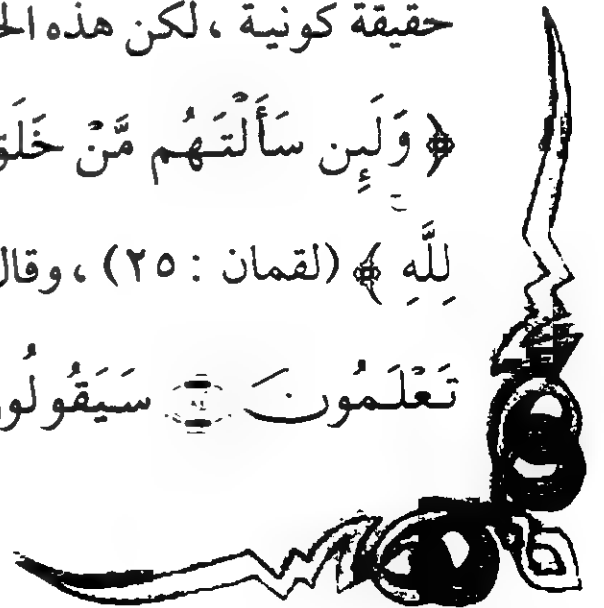 حقيقة كونية ، لكن هذه
﴿ وَلَئِن سَأَلْتَهُم مَّنْ
لِلَّهِ ﴾ (لقمان : ٢٥) ، وقال
تَعْلَمُونَ ٨٤ سَيَقُولُو